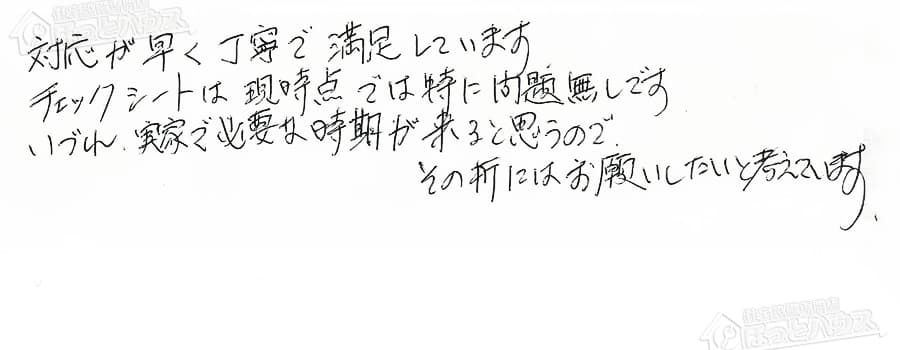 対応が早く丁寧で満足しています
チェックシートは現時点では特に問題無しです
いづれ、実家で必要な時期が来ると思うので、
その折にはお願いしたいと考えています、
ほっとハウス
ほっとハウス